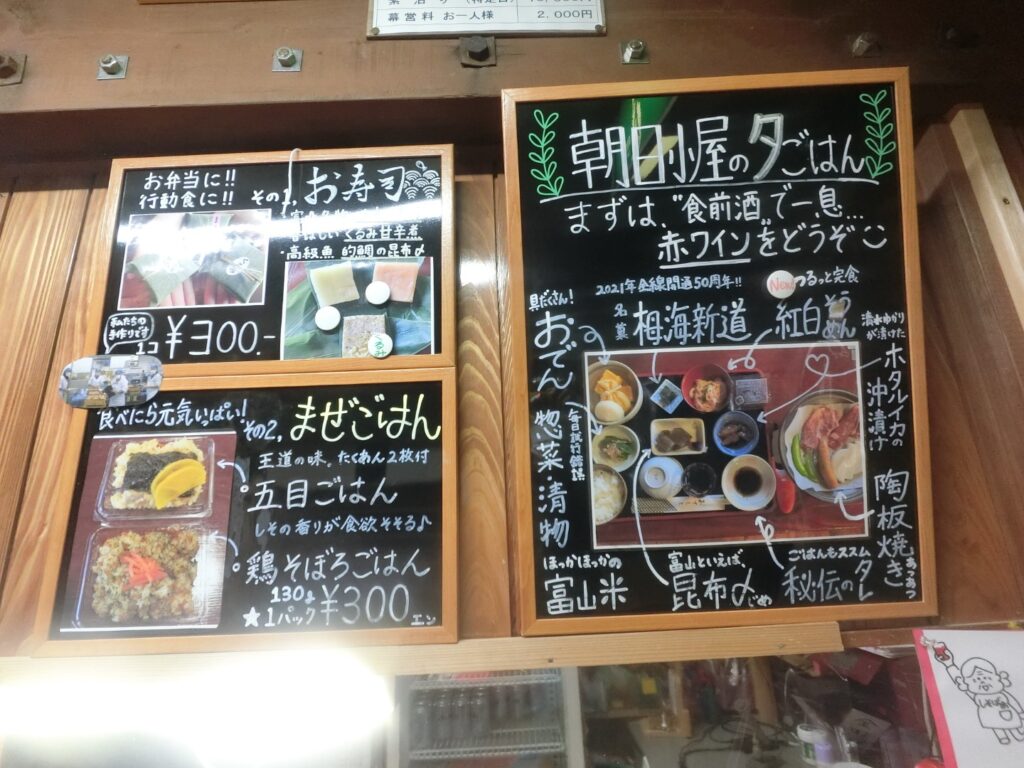 幕営料 お一人様 2,000円
お弁当に!!
行動食に!!
その1, お寿司
くるみ甘辛煮
高級魚 的鯛の昆布〆
私たちの
手作りです
1コ ¥300.-
食べたら元気いっぱい!
その2, まぜごはん
王道の味。たくあん2枚付
五目ごはん
しその香りが食欲そそる♪
鶏そぼろごはん
130g
★1パック ¥300エン
朝日小屋の夕ごはん
まずは、"食前酒"で一息…
赤ワインをどうぞ
2021年全線開通50周年!!
New! つるっと完食
名菓 栂海新道
紅白そうめん
具だくさん!
おでん
毎日試行錯誤
惣菜・漬物
清水ゆかりが漬けた
ホタルイカの沖漬け
陶板焼き あつあつ
ほっかほっかの
富山米
富山といえば、
昆布〆じめ
ごはんもススム
秘伝のタレ